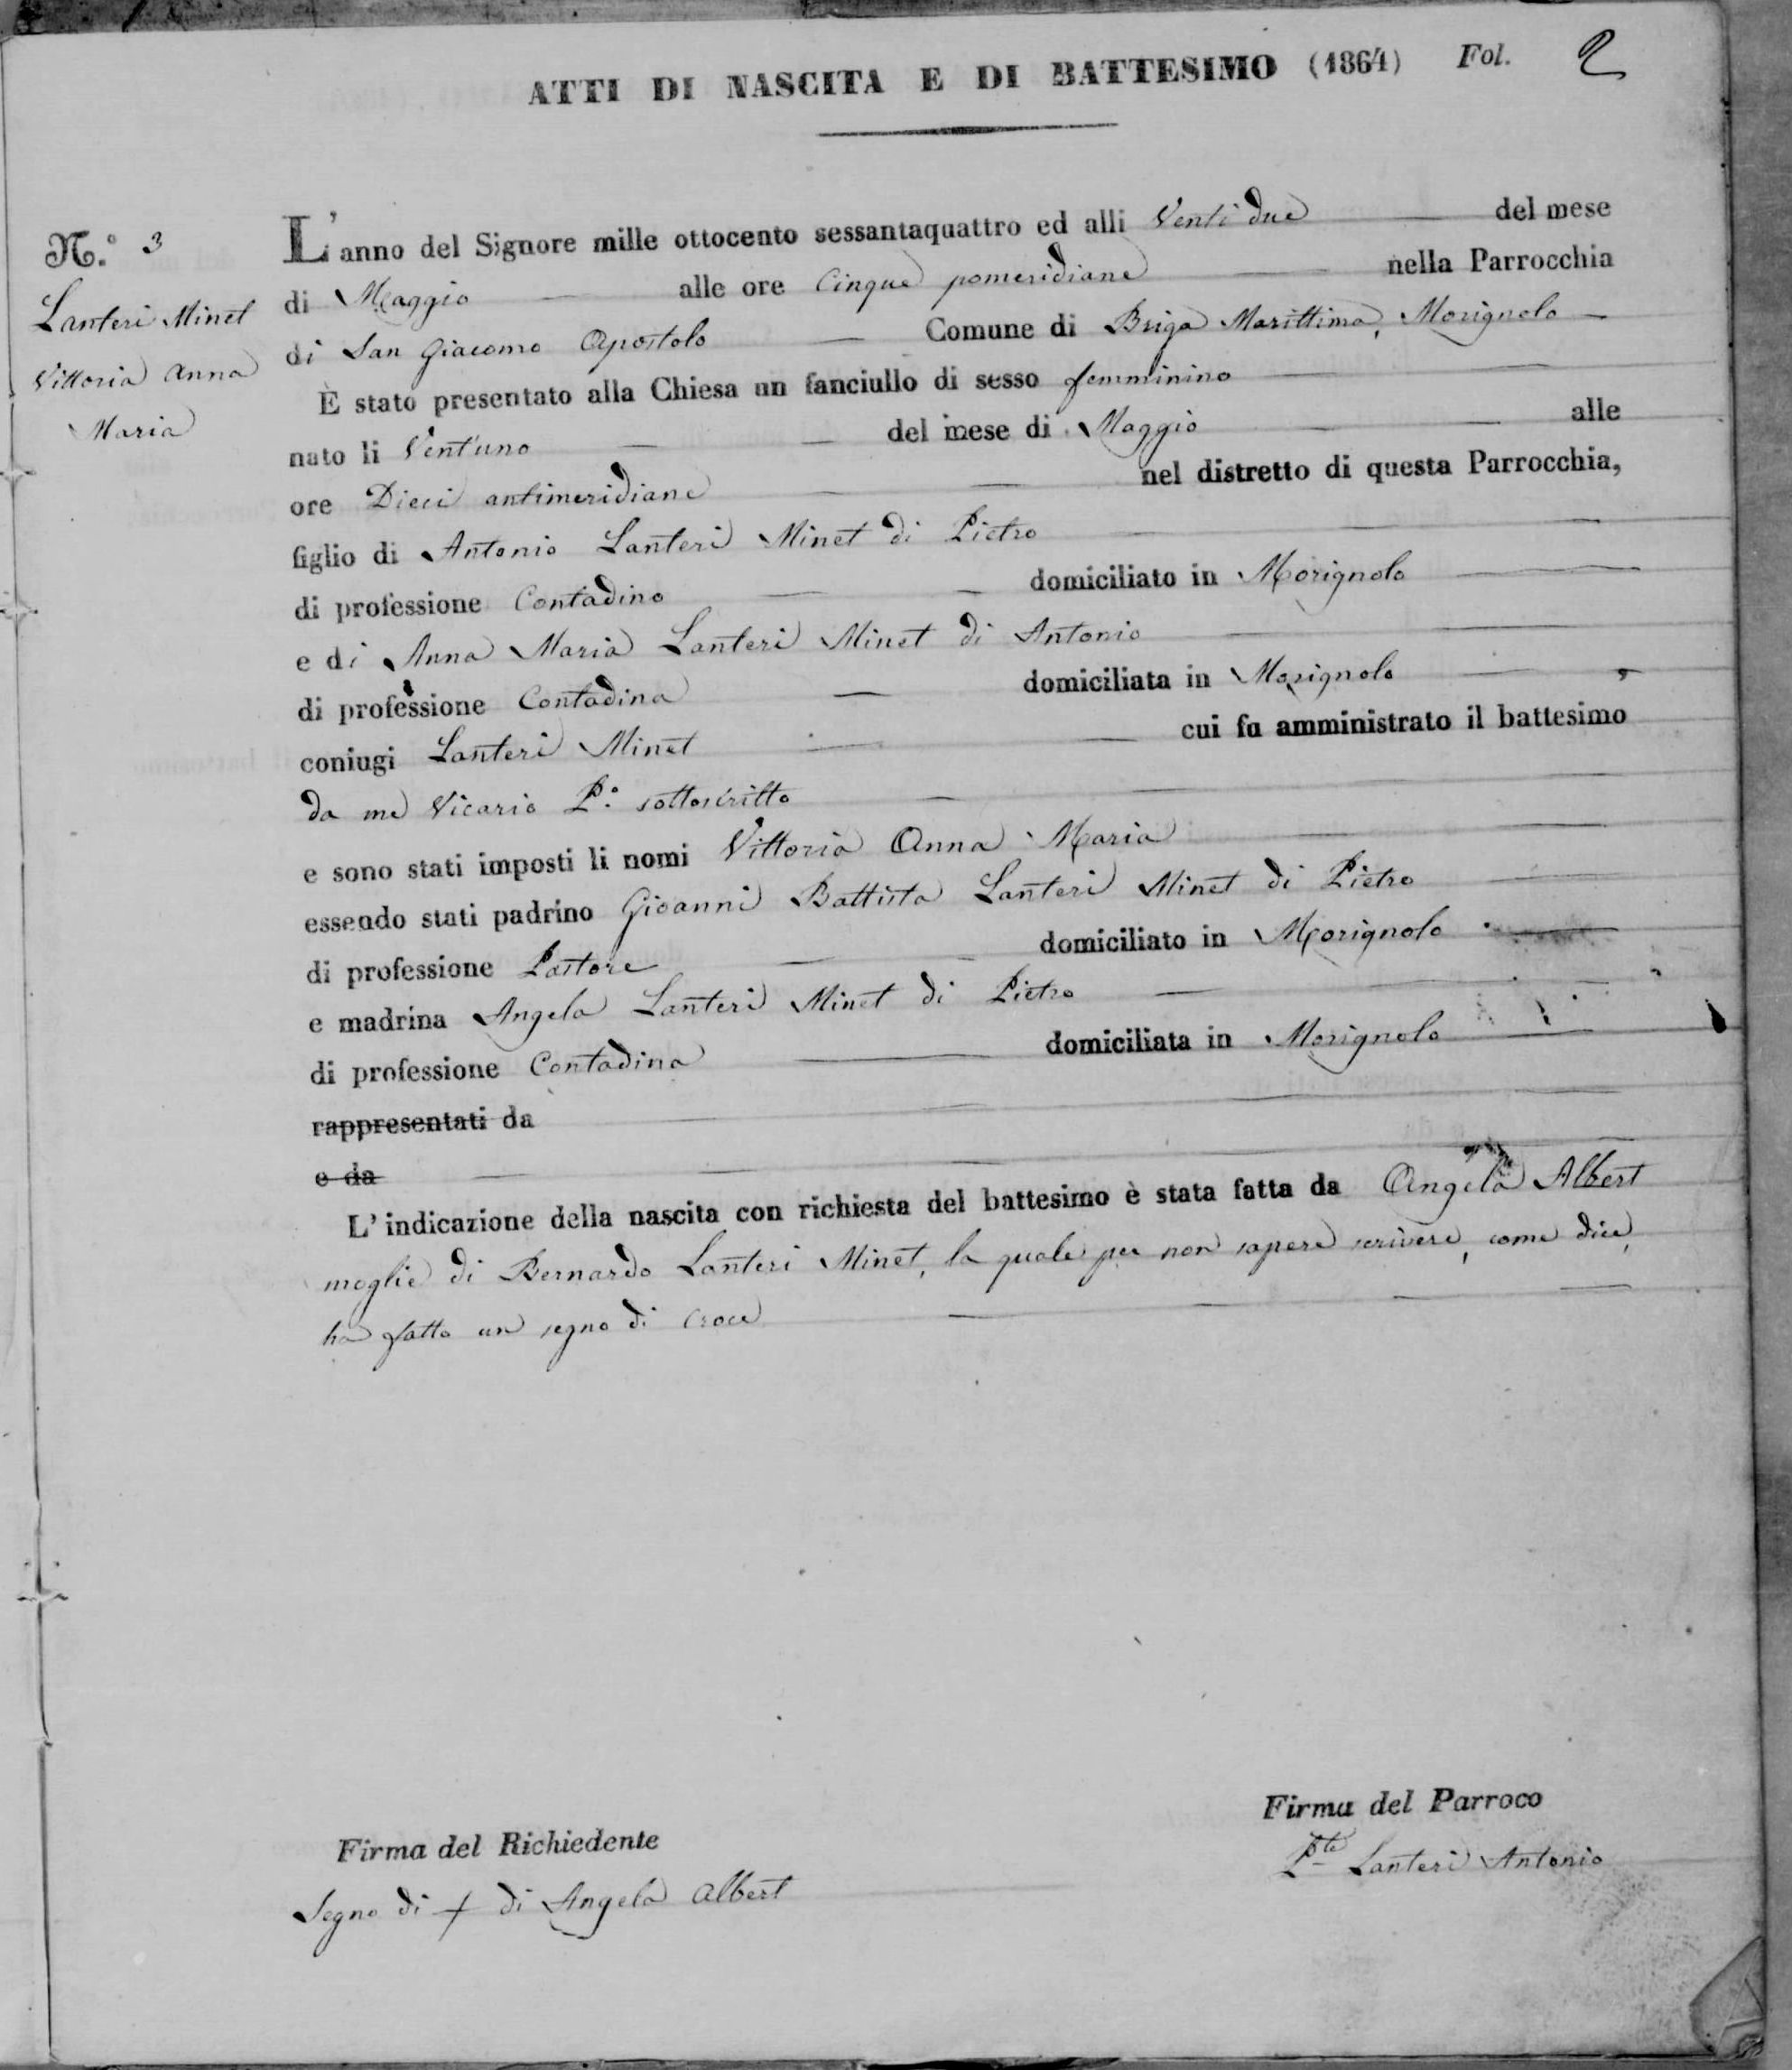 ATTI DI NASCITA E DI BATTESIMO (1864) Fol. 2
N.º 3
Lanteri Minet
Vittoria Anna
Maria
L'anno del Signore mille ottocento sessantaquattro ed alli Venti due del mese
di Maggio alle ore Cinque pomeridiane nella Parrocchia
di San Giacomo Apostolo Comune di Briga Marittima, Morignolo
È stato presentato alla Chiesa un fanciullo di sesso femminino
nato li Vent'uno del mese di Maggio alle
ore Dieci antimeridiane nel distretto di questa Parrocchia,
figlio di Antonio Lanteri Minet di Pietro
di professione Contadino domiciliato in Morignolo
e di Anna Maria Lanteri Minet di Antonio
di professione Contadina domiciliata in Morignolo ,
coniugi Lanteri Minet cui fu amministrato il battesimo
da me Vicario P.º sottoscritto
e sono stati imposti li nomi Vittoria Anna Maria
essendo stati padrino Gioanni Battista Lanteri Minet di Pietro
di professione Pastore domiciliato in Morignolo
e madrina Angela Lanteri Minet di Pietro
di professione Contadina domiciliata in Morignolo
rappresentati da
e da
L'indicazione della nascita con richiesta del battesimo è stata fatta da Angela Albert
moglie di Bernardo Lanteri Minet, la quale per non sapere scrivere, come dice,
ha fatto un segno di croce
Firma del Richiedente
Segno di + di Angela Albert
Firma del Parroco
Pte Lanteri Antonio